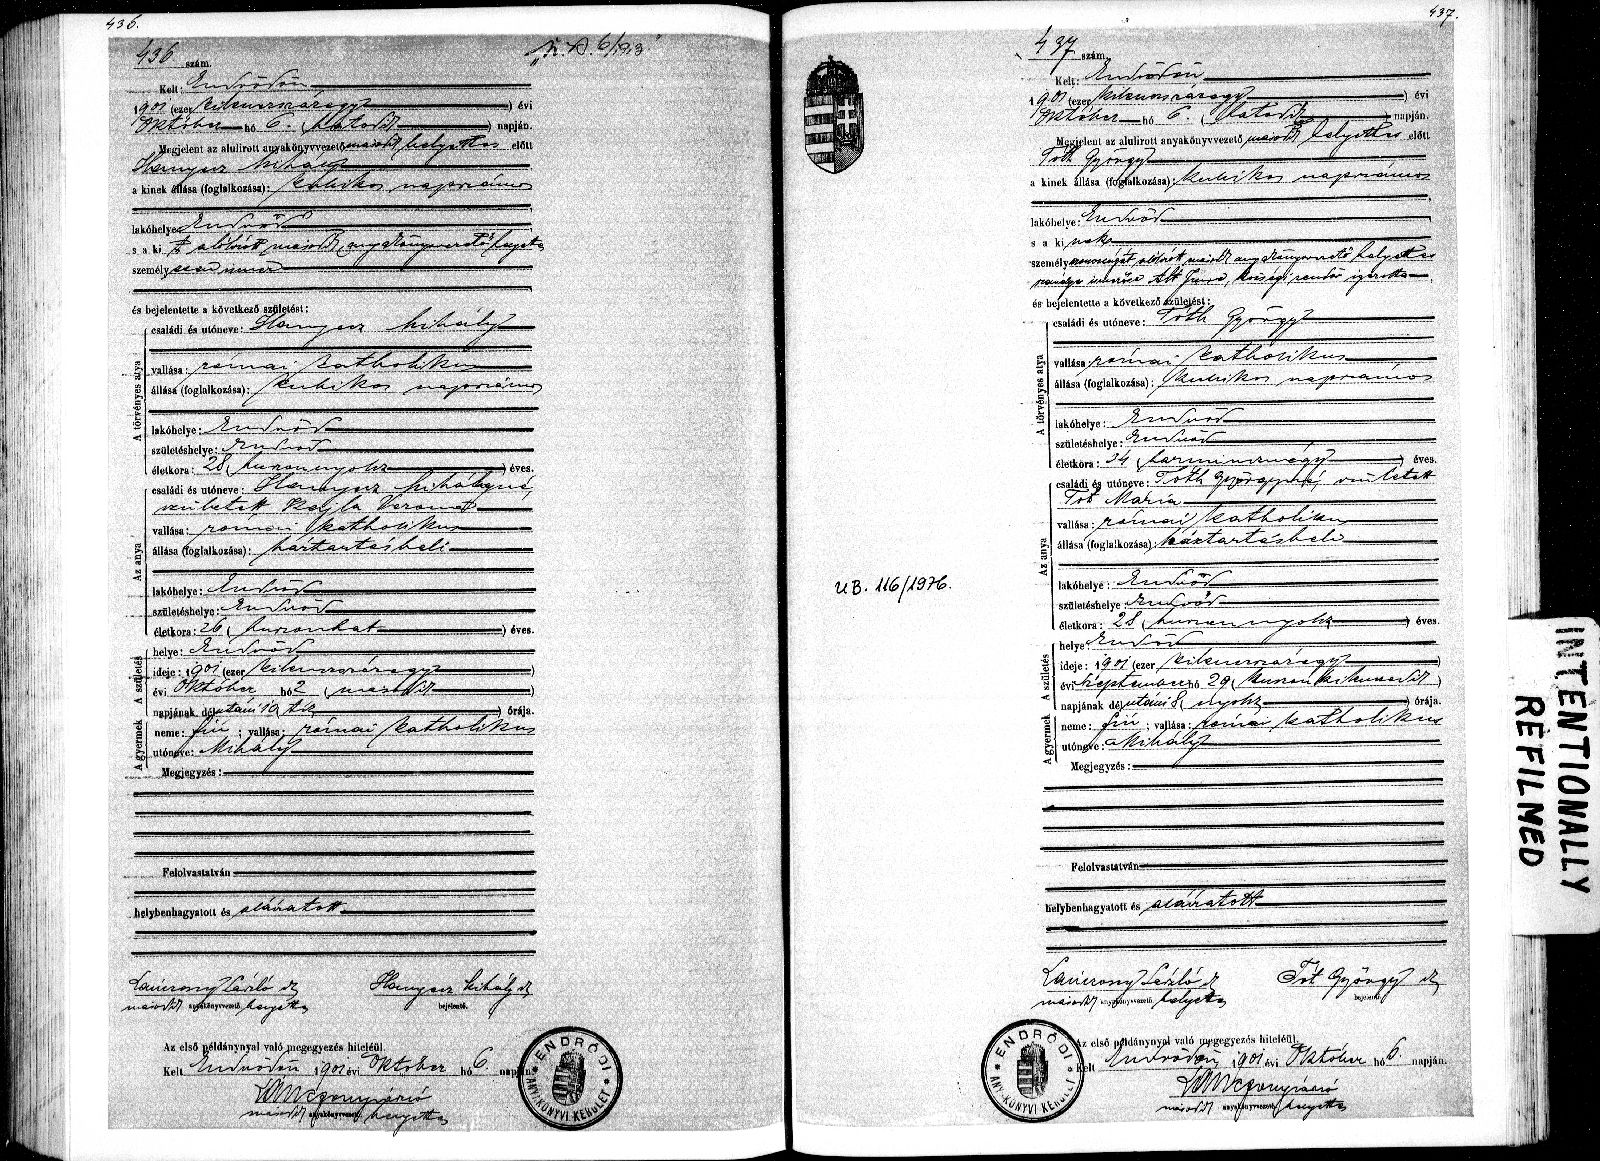 436.
436 szám.
Kelt: Endrődön,
1901 (ezer kilencszázegy) évi
Október hó 6. (hatodik) napján.
Megjelent az alulirott anyakönyvvezető másodk helyettes előtt
Hanyecz Mihály
a kinek állása (foglalkozása): kubikos napszámos
lakóhelye: Endrőd
s a ki t alólirott másodk anyakönyvvezető helyettes
személyesen ismer
és bejelentette a következő születést:
A törvényes atya
családi és utóneve: Hanyecz Mihály
vallása: római katholikus
állása (foglalkozása): kubikos napszámos
lakóhelye: Endrőd
születéshelye: Endrőd
életkora: 28 (huszonnyolcz) éves.
Az anya
családi és utóneve: Hanyecz Mihályné,
született Verona
vallása: római katholikus
állása (foglalkozása): háztartásbeli
lakóhelye: Endrőd
születéshelye: Endrőd
életkora: 26 (huszonhat) éves.
A születés
helye: Endrőd
ideje: 1901 (ezer kilenczszázegy)
évi Október hó 2 (második)
napjának délutáni 10 tiz órája.
A gyermek
neme: fiú; vallása: római katholikus
utóneve: Mihály
Megjegyzés:
Felolvastatván
helybenhagyatott és aláíratott
László
másodk anyakönyvvezető helyettes
Hanyecz Mihály
bejelentő.
Az első példánynyal való megegyezés hiteléül.
Kelt Endrődön 1901 évi Október hó 6. napján.
másodk anyakönyvvezető helyettes
ENDRŐDI ANYAKÖNYVI KERÜLET
437.
437 szám.
Kelt: Endrődön
1901 (ezer kilenczszázegy) évi
Október hó 6. (hatodik) napján.
Megjelent az alulirott anyakönyvvezető másodk helyettes előtt
Tóth György
a kinek állása (foglalkozása): kubikos napszámos
lakóhelye: Endrőd
s a kinek
személyazonosságát alólirott másodk anyakönyvvezető helyettes
személyes ismerőse Imre, községi rendőr igazolta
és bejelentette a következő születést:
A törvényes atya
családi és utóneve: Tóth György
vallása: római katholikus
állása (foglalkozása): kubikos napszámos
lakóhelye: Endrőd
születéshelye: Endrőd
életkora: 34 (harmincznégy) éves.
Az anya
családi és utóneve: Tóth Györgyné, született
Tót Mária
vallása: római katholikus
állása (foglalkozása): háztartásbeli
lakóhelye: Endrőd
születéshelye: Endrőd
életkora: 28 (huszonnyolcz) éves.
A születés
helye: Endrőd
ideje: 1901 (ezer kilenczszázegy)
évi Szeptember hó 29 (huszonkilenczedik)
napjának délutáni 8 nyolcz órája.
A gyermek
neme: fiú; vallása: római katholikus
utóneve: Mihály
Megjegyzés:
Felolvastatván
helybenhagyatott és aláíratott
László
másodk anyakönyvvezető helyettes
Tót György
bejelentő
Az első példánynyal való megegyezés hiteléül.
Kelt Endrődön, 1901 évi Október hó 6. napján.
másodk anyakönyvvezető helyettes
ENDRŐDI ANYAKÖNYVI KERÜLET
UB. 116/1976.
INTENTIONALLY
REFILMED